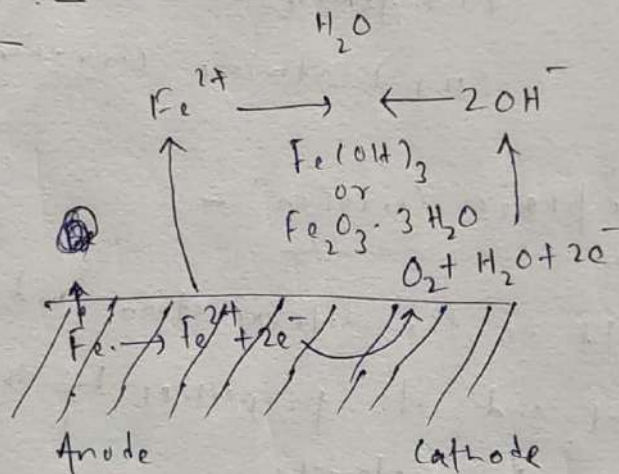 H₂O
Fe²⁺ → ← 2OH⁻
Fe(OH)₃
or
Fe₂O₃·3H₂O
O₂ + H₂O + 2e⁻
Fe → Fe²⁺ + 2e⁻
Anode Cathode